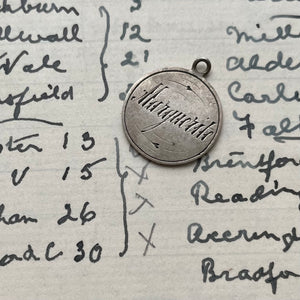 hburn 3
llwall 12
Vale 21
sfield
ster 13
V 15
ham 26
C 30
Marguerite
Mill
Alde
Carl
Brentfor
Reading
Accring
Bradfor